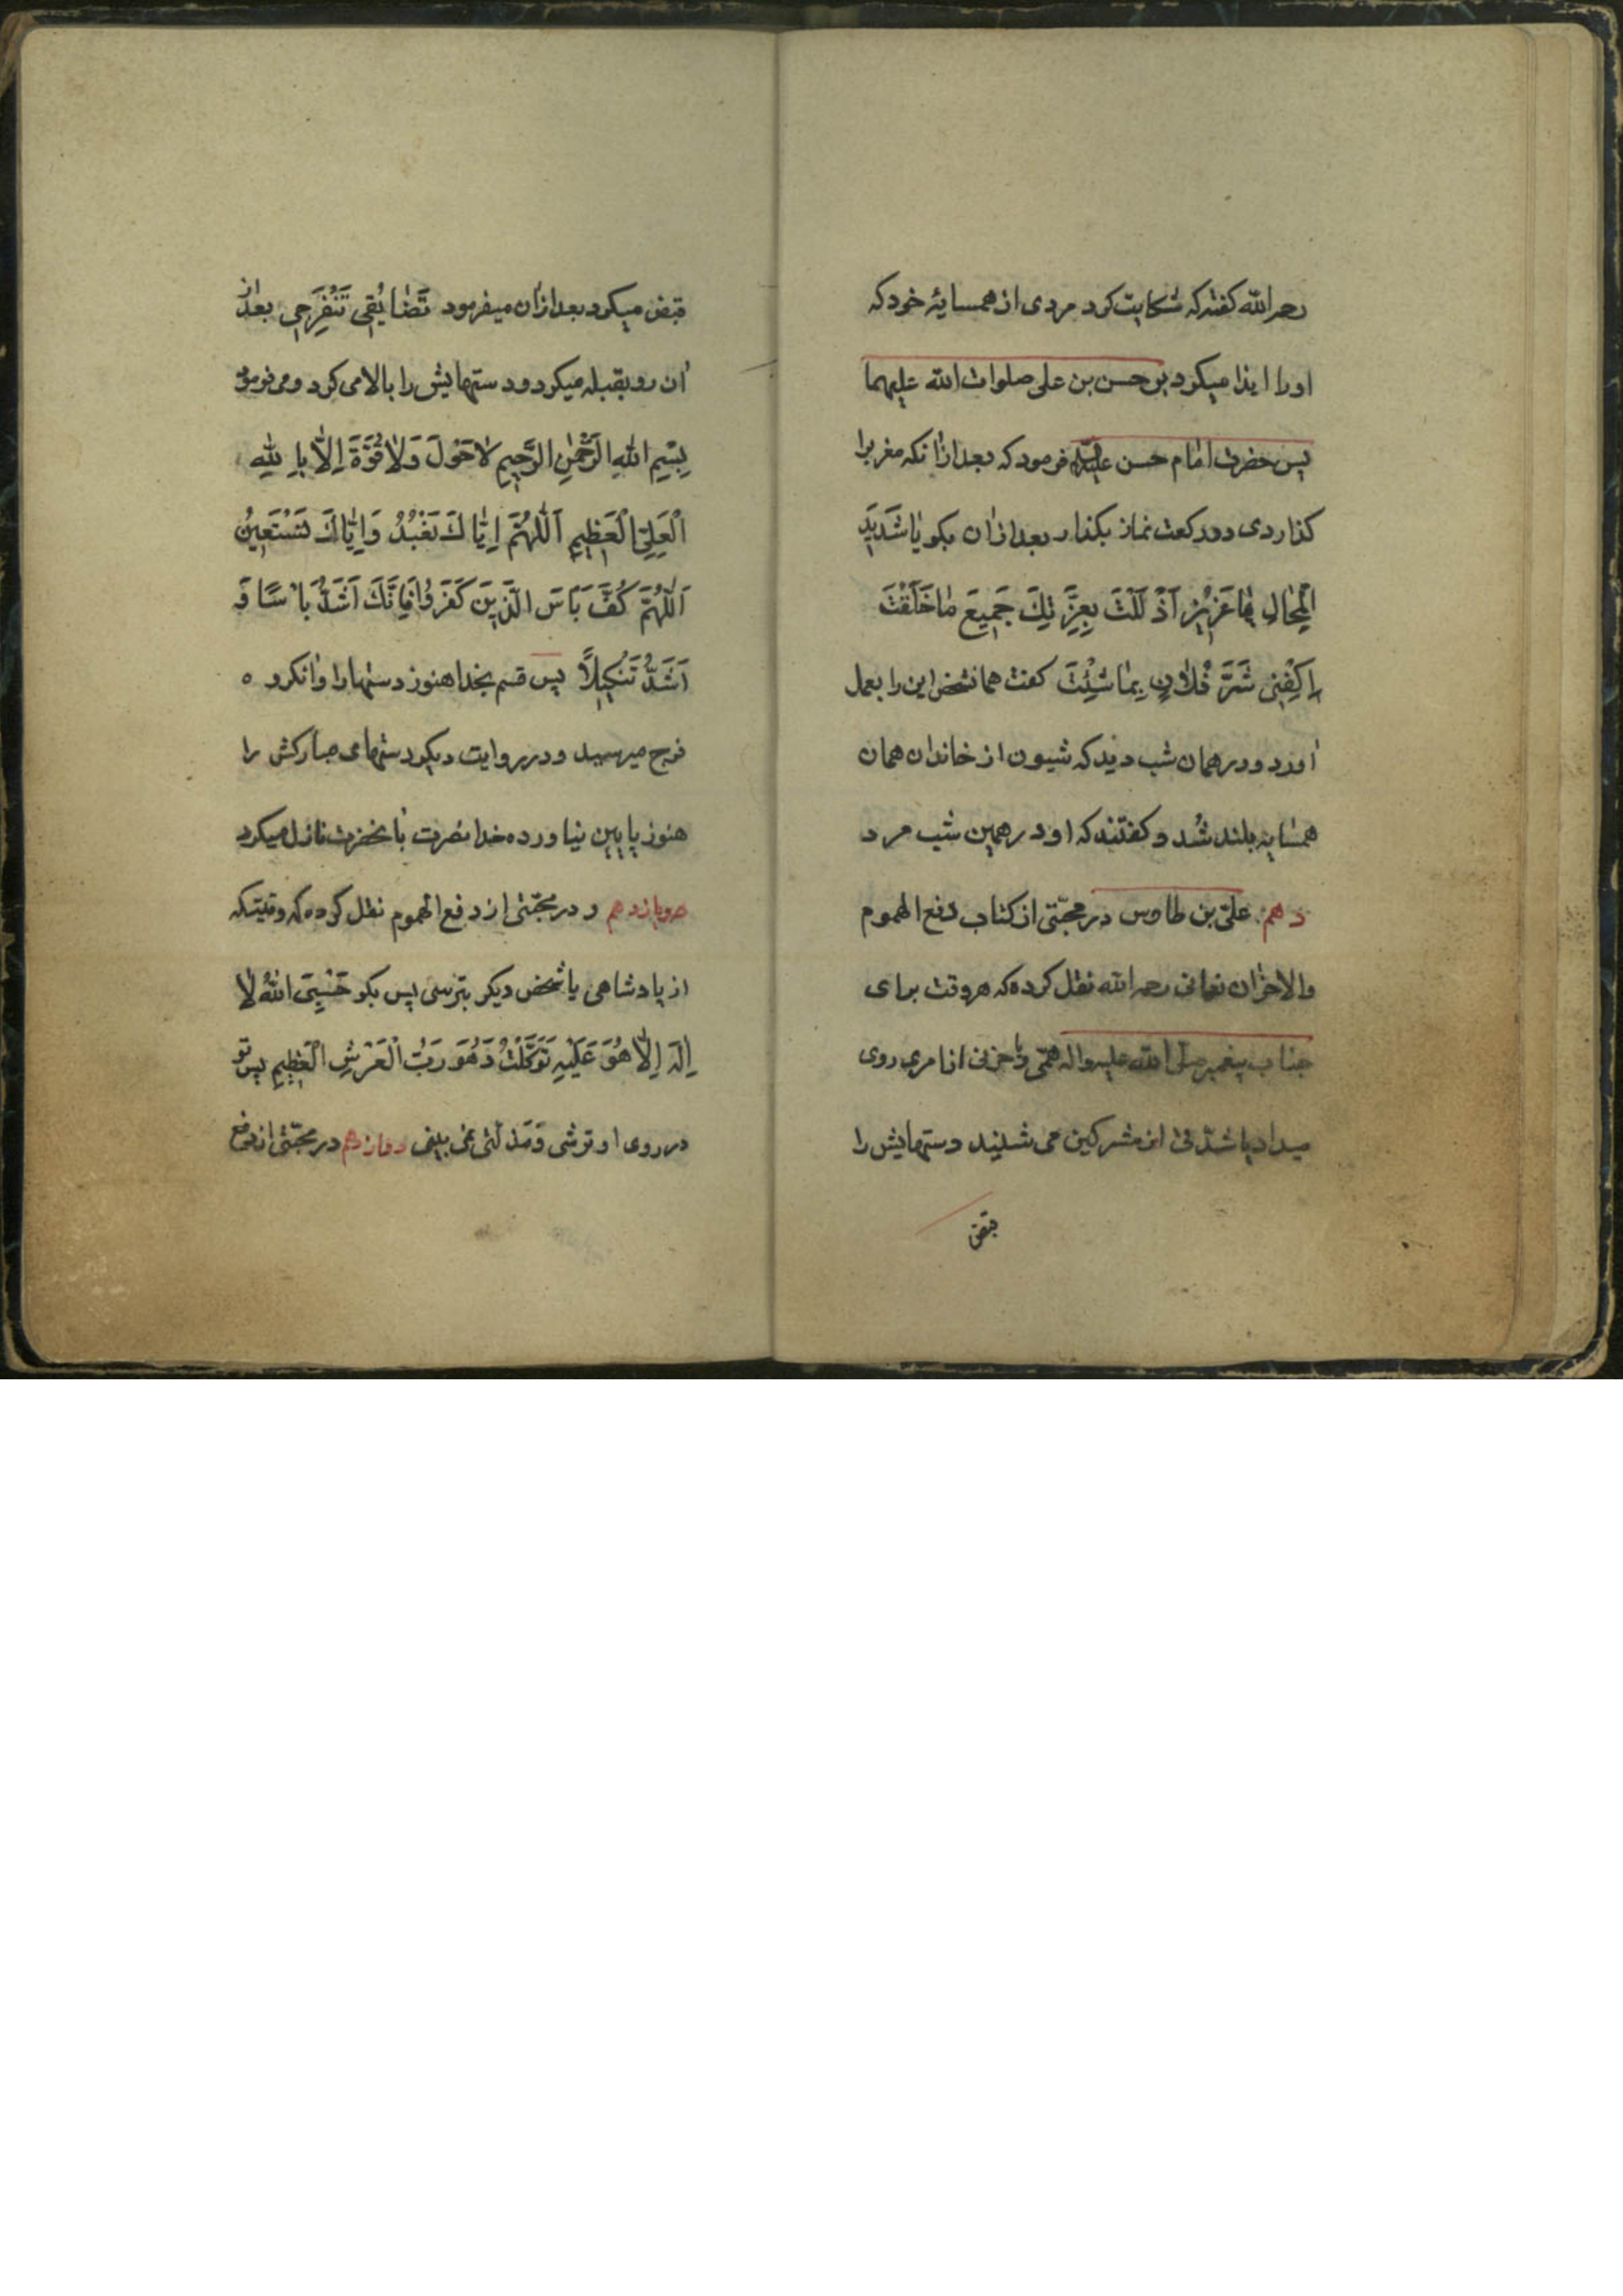 رحمه الله گفته که شکایت کرد مردی از همسایهٔ خود که
او را ایذا میکرد بر حسن بن علی صلوات الله علیهما
پس حضرت امام حسن علیه فرمود که بعد از آنکه مغرب را
گذاردی دو رکعت نماز بگذار بعد از آن بگو یٰا شَدیدَ
الْمِحٰالِ یٰا عَزیٖزُ اَذْلَلْتَ بِعِزَّتِكَ جَمیٖعَ مٰا خَلَقْتَ
اِکْفِنیٖ شَرَّ فُلٰانٍ بِمٰا شِئْتَ گفت همان شخص این را بعمل
آورد و در همان شب دید که شیون از خاندان همان
همسایه بلند شد و گفتند که او در همین شب مرد
دهم علی بن طاوس در مجتنی از کتاب دفع الهموم
والاحزان نعمانی رحمه الله نقل کرده که هر وقت برای
جناب پیغمبر صلی الله علیه واله همّی و یا حزنی از امری روی
میداد یا شدتی از مشرکین می شنید دستهایش را
قبض
قبض میکرد بعد از آن میفرمود تَضٰایُقیٖ تَنْفَرِجیٖ بعد از
آن رو بقبله میکرد و دستهایش را بالا می کرد و می فرمود
بِسْمِ اللهِ الرَّحْمٰنِ الرَّحیٖمِ لٰاحَوْلَ وَلٰاقُوَّةَ اِلّٰا بِاللهِ
الْعَلِیِّ الْعَظیٖمِ اَللّٰهُمَّ اِیّٰاكَ نَعْبُدُ وَاِیّٰاكَ نَسْتَعیٖنُ
اَللّٰهُمَّ کُفَّ بَاْسَ الَّذیٖنَ کَفَرُوا فَاِنَّكَ اَشَدُّ بَاْسًا وَ
اَشَدُّ تَنْکیٖلاً پس قسم بخدا هنوز دستها را وا نکرده
فرج میرسید و در روایت دیگر دستهای مبارکش را
هنوز پایین نیاورده خدا نصرت بآنحضرت نازل میکرد
یازدهم و در مجتنی از دفع الهموم نقل کرده که وقتیکه
از پادشاهی یا شخص دیگر بترسی پس بگو حَسْبِیَ اللهُ لٰا
اِلٰهَ اِلّٰا هُوَ عَلَیْهِ تَوَکَّلْتُ وَهُوَ رَبُّ الْعَرْشِ الْعَظیٖمِ پس تو
در روی او ترشی و مذلتی نمی بینی دوازدهم در مجتنی از دفع